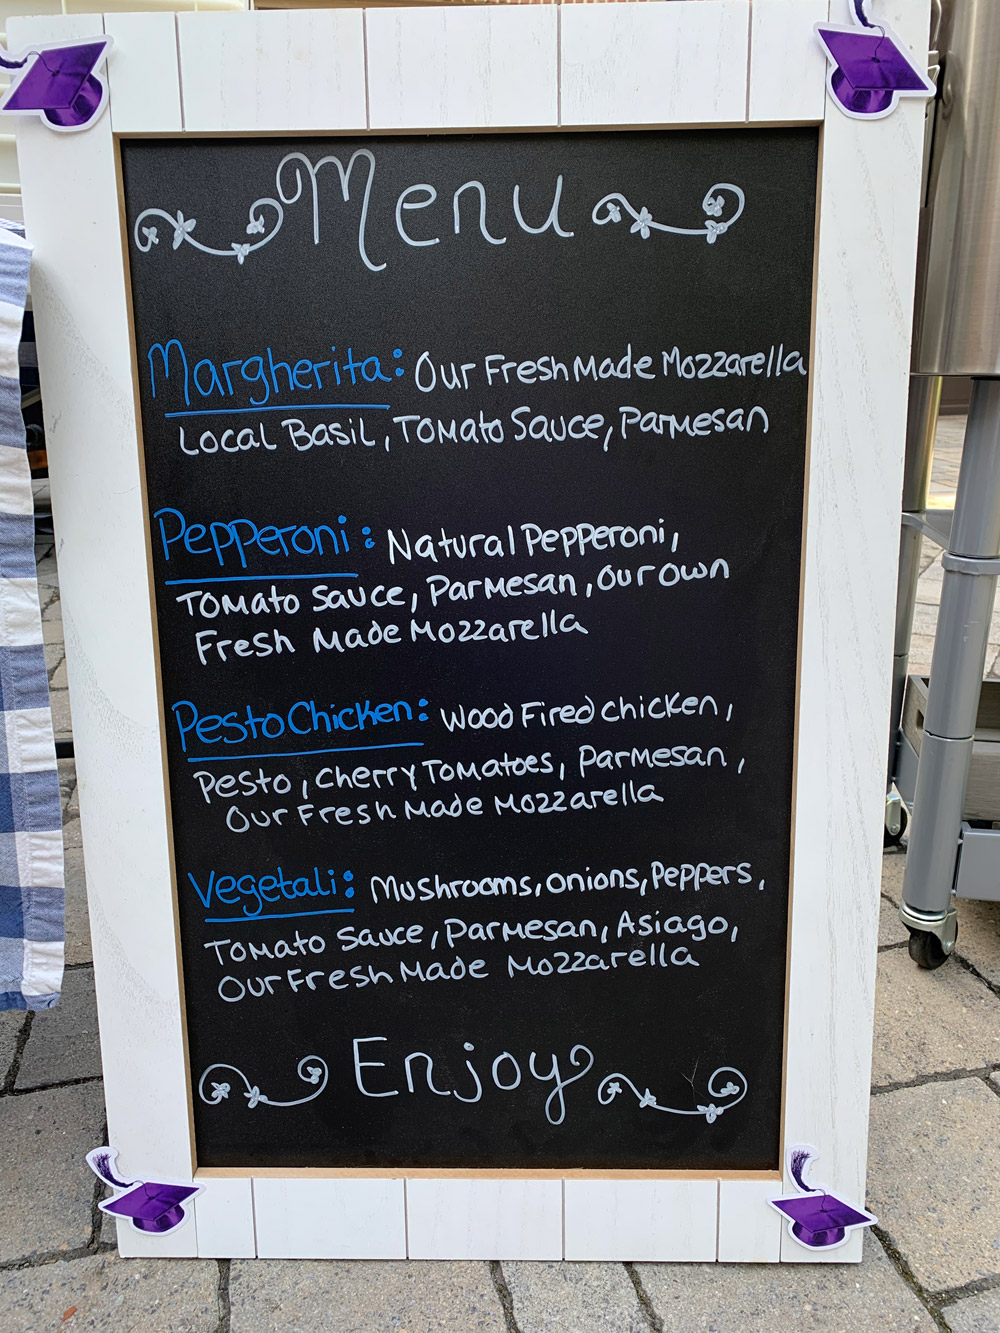 Menu
Margherita: Our Fresh Made Mozzarella
Local Basil, Tomato Sauce, Parmesan
Pepperoni: Natural Pepperoni,
Tomato Sauce, Parmesan, Our own
Fresh Made Mozzarella
Pesto Chicken: Wood Fired chicken,
Pesto, Cherry Tomatoes, Parmesan,
Our Fresh Made Mozzarella
Vegetali: Mushrooms, Onions, Peppers,
Tomato Sauce, Parmesan, Asiago,
Our Fresh Made Mozzarella
Enjoy